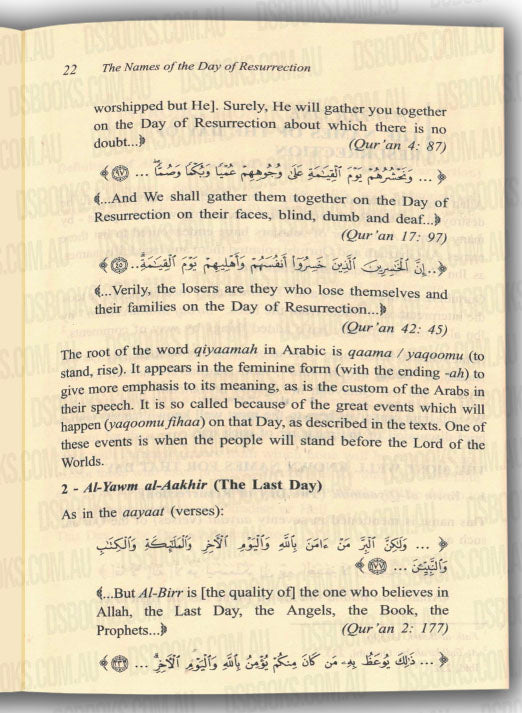 22 The Names of the Day of Resurrection
worshipped but He]. Surely, He will gather you together
on the Day of Resurrection about which there is no
doubt...﴾ (Qur'an 4: 87)
﴿... وَنَحْشُرُهُمْ يَوْمَ ٱلْقِيَـٰمَةِ عَلَىٰ وُجُوهِهِمْ عُمْيًا وَبُكْمًا وَصُمًّا ... ٩٧﴾
﴾...And We shall gather them together on the Day of
Resurrection on their faces, blind, dumb and deaf...﴿
(Qur'an 17: 97)
﴿...إِنَّ ٱلْخَـٰسِرِينَ ٱلَّذِينَ خَسِرُوٓا۟ أَنفُسَهُمْ وَأَهْلِيهِمْ يَوْمَ ٱلْقِيَـٰمَةِ ... ٤٥﴾
﴾...Verily, the losers are they who lose themselves and
their families on the Day of Resurrection...﴿
(Qur'an 42: 45)
The root of the word qiyaamah in Arabic is qaama / yaqoomu (to
stand, rise). It appears in the feminine form (with the ending -ah) to
give more emphasis to its meaning, as is the custom of the Arabs in
their speech. It is so called because of the great events which will
happen (yaqoomu fihaa) on that Day, as described in the texts. One of
these events is when the people will stand before the Lord of the
Worlds.
2 - Al-Yawm al-Aakhir (The Last Day)
As in the aayaat (verses):
﴿... وَلَـٰكِنَّ ٱلْبِرَّ مَنْ ءَامَنَ بِٱللَّهِ وَٱلْيَوْمِ ٱلْـَٔاخِرِ وَٱلْمَلَـٰٓئِكَةِ وَٱلْكِتَـٰبِ
وَٱلنَّبِيِّـۧنَ ... ١٧٧﴾
﴾...But Al-Birr is [the quality of] the one who believes in
Allah, the Last Day, the Angels, the Book, the
Prophets...﴿ (Qur'an 2: 177)
﴿... ذَٰلِكَ يُوعَظُ بِهِۦ مَن كَانَ مِنكُمْ يُؤْمِنُ بِٱللَّهِ وَٱلْيَوْمِ ٱلْـَٔاخِرِ ... ٢٣٢﴾
DSBOOKS.COM.AU